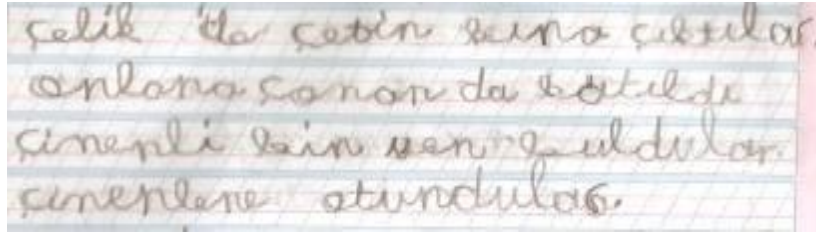 çelik ile çetin kıra çıktılar.
onlara canan da katıldı
çimenli bir yer buldular.
çimenlere oturdular.